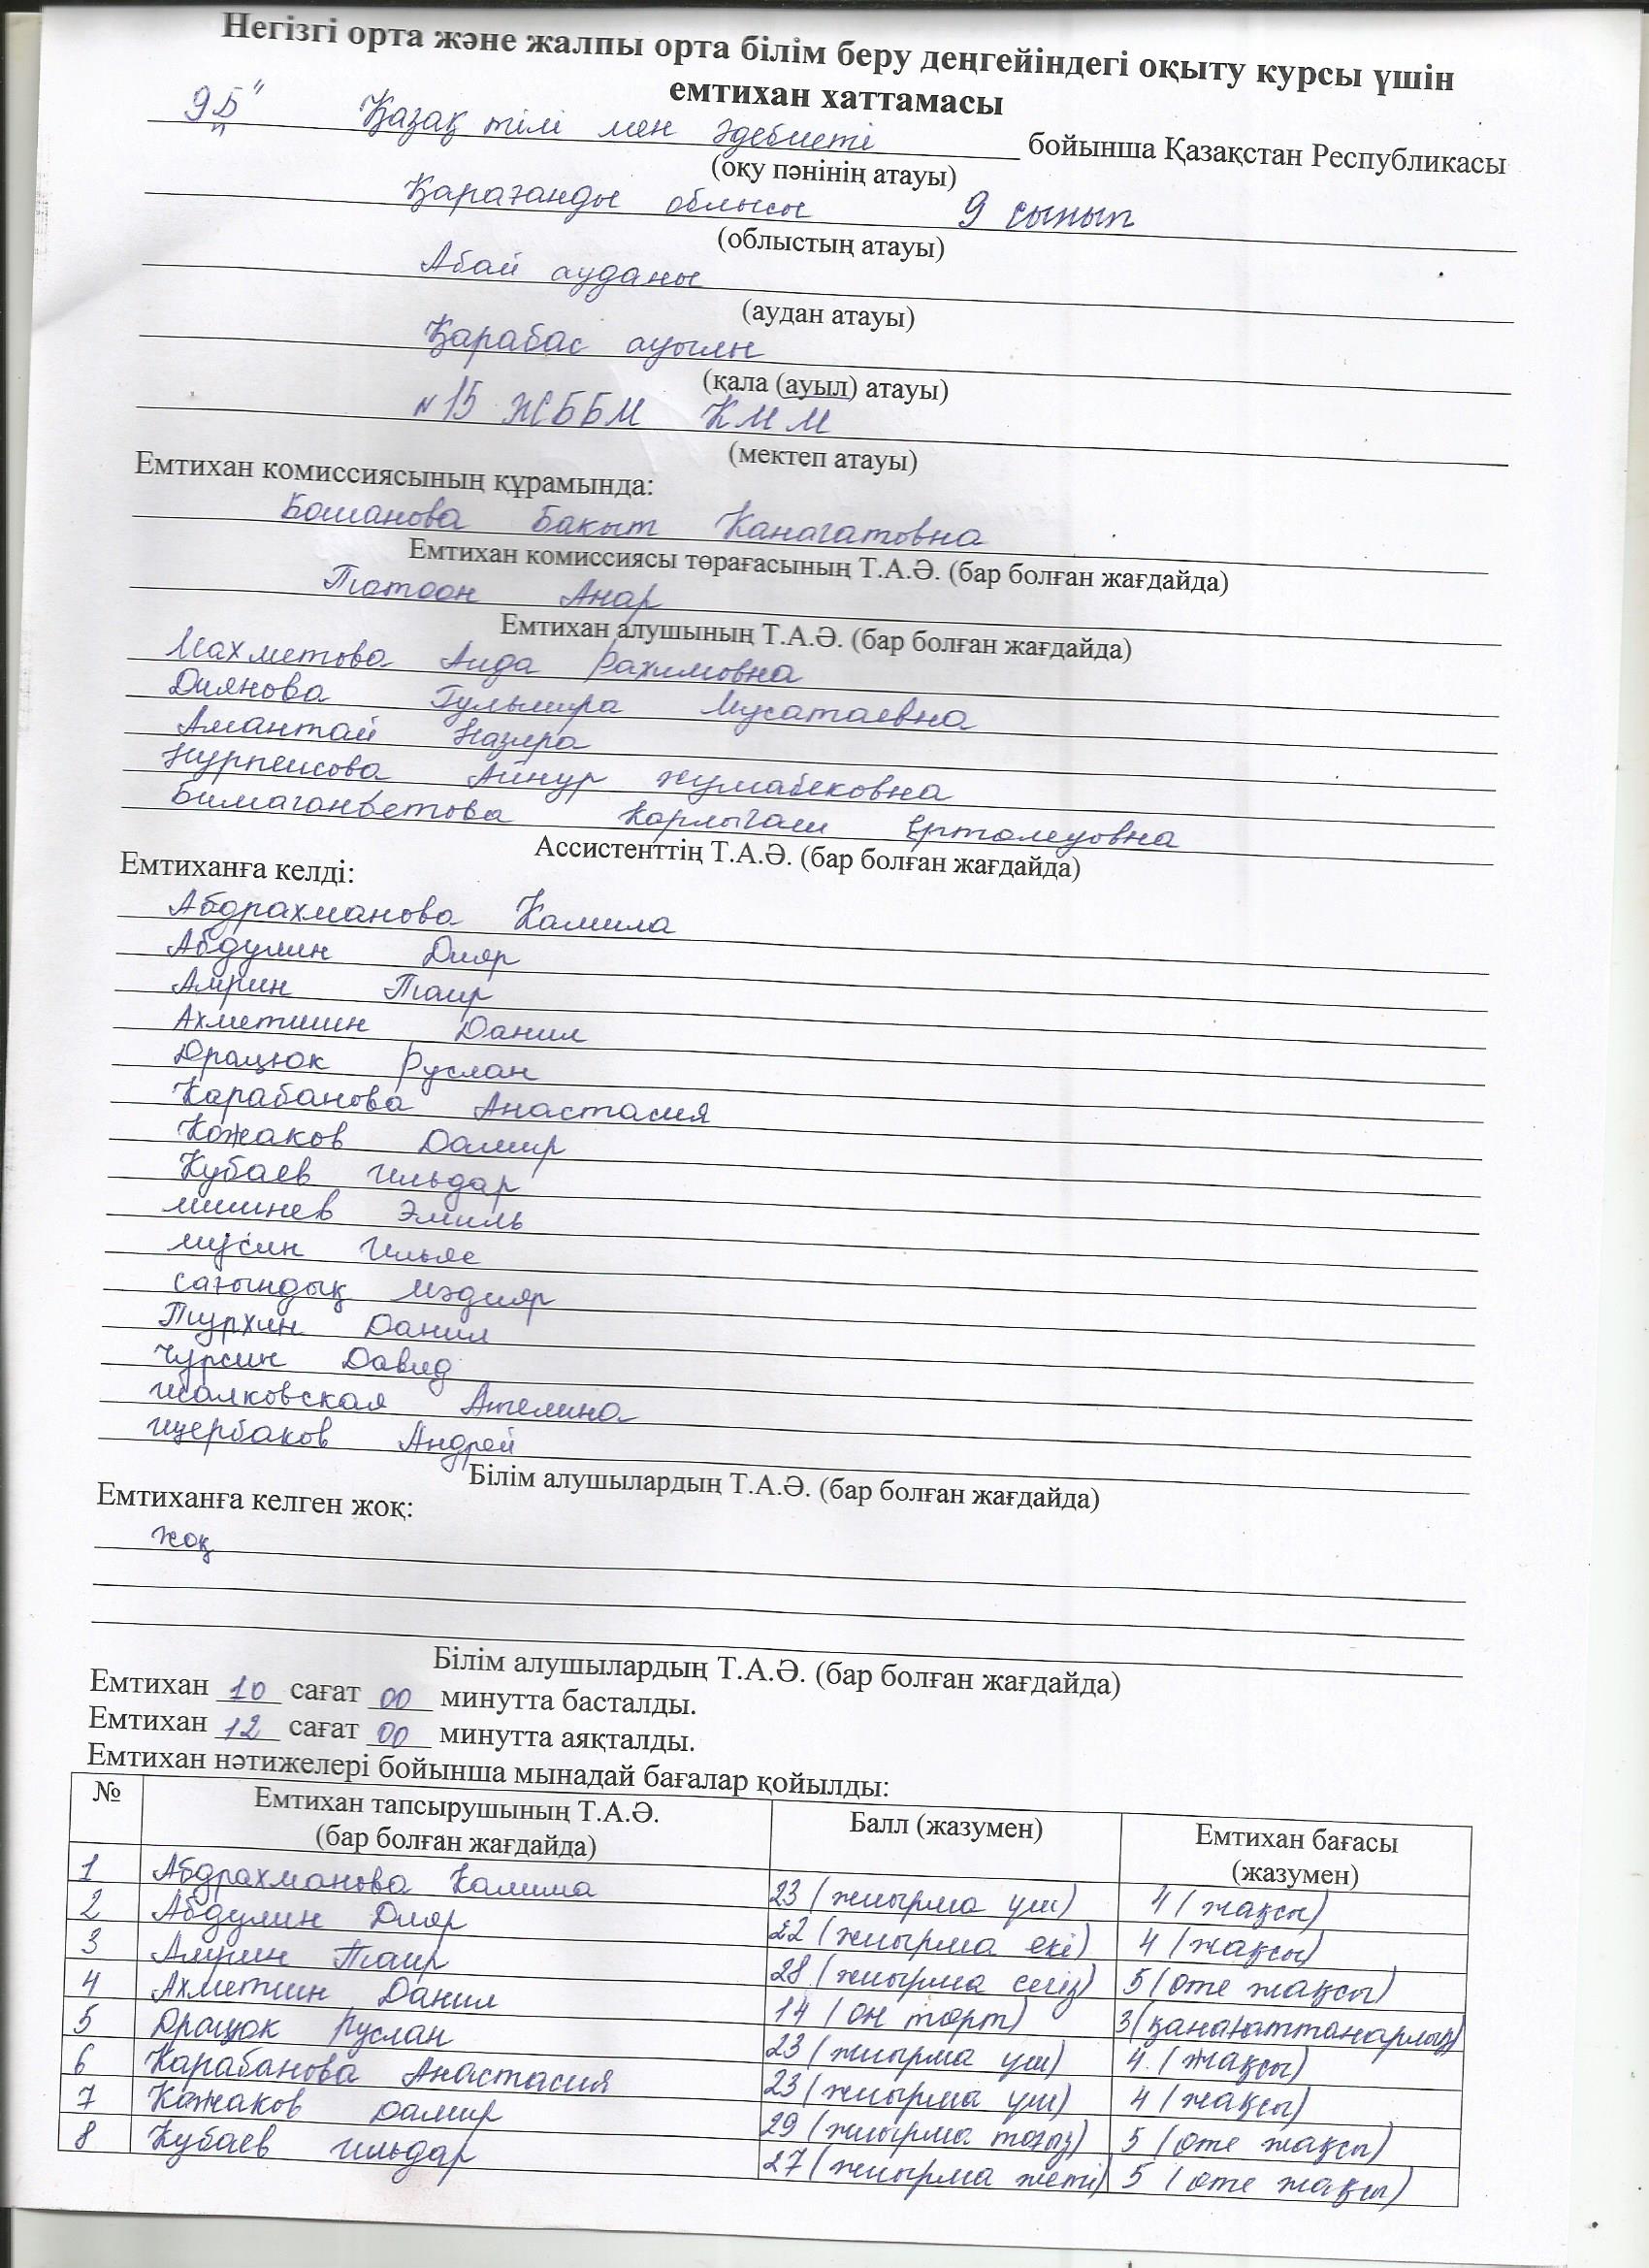 Негізгі орта және жалпы орта білім беру деңгейіндегі оқыту курсы үшін
емтихан хаттамасы
9„Б" Қазақ тілі мен әдебиеті бойынша Қазақстан Республикасы
(оқу пәнінің атауы)
Қарағанды облысы 9 сынып
(облыстың атауы)
Абай ауданы
(аудан атауы)
Қарабас ауылы
(қала (ауыл) атауы)
№15 ЖББМ КММ
(мектеп атауы)
Емтихан комиссиясының құрамында:
Бошанова Бакыт Канагатовна
Емтихан комиссиясы төрағасының Т.А.Ә. (бар болған жағдайда)
Анар
Емтихан алушының Т.А.Ә. (бар болған жағдайда)
Махметова Аида Рахимовна
Диянова Гульмира Мусатаевна
Амантай Назира
Нурпеисова Айнур Жумабековна
Бимаганбетова Карлыгаш
Ассистенттің Т.А.Ә. (бар болған жағдайда)
Емтиханға келді:
Абдрахманова Камила
Абдулин Дияр
Амрин Таир
Ахметшин Данил
Драцюк Руслан
Карабанова Анастасия
Кожаков Дамир
Кубаев Ильдар
Мишнев Эмиль
Мусин Ильяс
Сағындық Мәдияр
Турхин Данил
Чурсин Давид
Шалковская Ателина
Щербаков Андрей
Білім алушылардың Т.А.Ә. (бар болған жағдайда)
Емтиханға келген жоқ:
жоқ
Білім алушылардың Т.А.Ә. (бар болған жағдайда)
Емтихан 10 сағат 00 минутта басталды.
Емтихан 12 сағат 00 минутта аяқталды.
Емтихан нәтижелері бойынша мынадай бағалар қойылды:
№ Емтихан тапсырушының Т.А.Ә. (бар болған жағдайда) Балл (жазумен) Емтихан бағасы (жазумен)
1 Абдрахманова Камила 23 (жиырма үш) 4 (жақсы)
2 Абдулин Дияр 22 (жиырма екі) 4 (жақсы)
3 Амрин Таир 28 (жиырма сегіз) 5 (өте жақсы)
4 Ахметшин Данил 14 (он төрт) 3 (қанағаттанарлық)
5 Драцюк Руслан 23 (жиырма үш) 4 (жақсы)
6 Карабанова Анастасия 23 (жиырма үш) 4 (жақсы)
7 Кожаков Дамир 29 (жиырма тоғыз) 5 (өте жақсы)
8 Кубаев Ильдар 27 (жиырма жеті) 5 (өте жақсы)